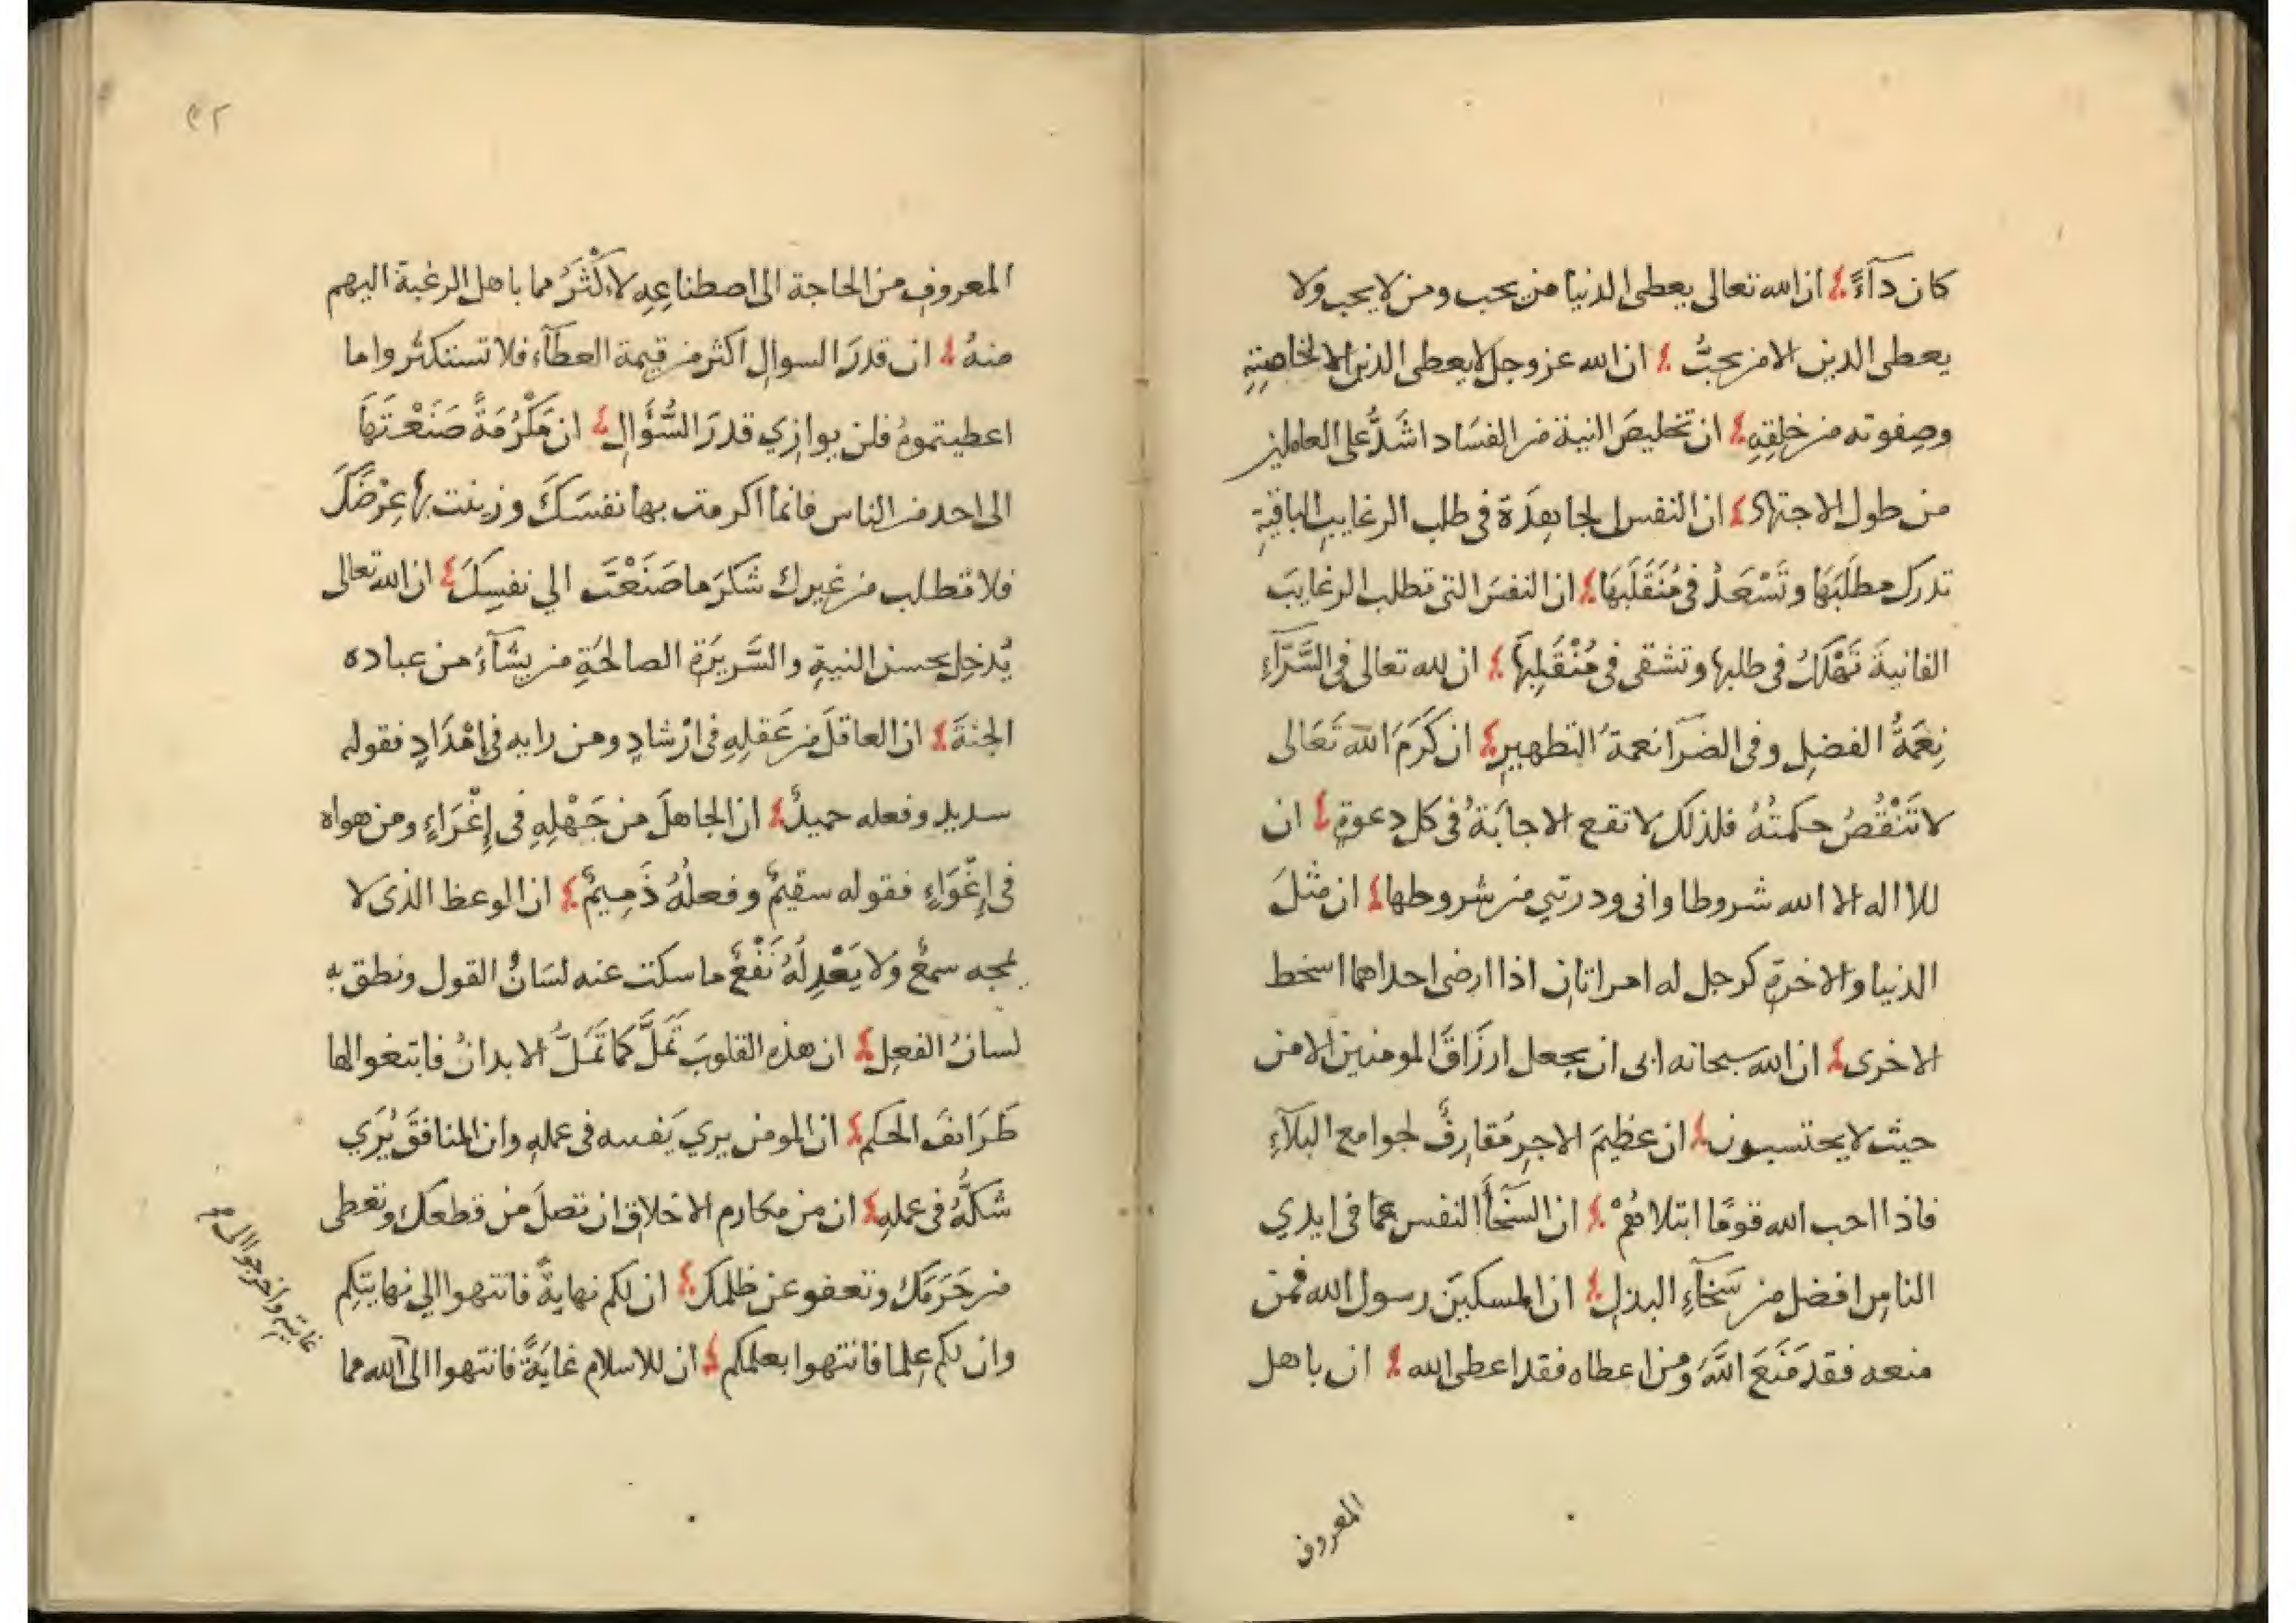 كان دآءً ان الله تعالى يعطى الدنيا من يحب ومن لا يحب ولا
يعطى الدين الا من يحبُّ ان الله عز وجل لا يعطى الدين الا لخاصتِهِ
وصفوته من خلقِهِ ان تخليصَ النية من الفسَاد اشَدُّ على العاملين
من طول الاجتهاد ان النفس لجاهِدَة فى طلب الرغايبِ الباقيةِ
تدرك مطلَبَهَا وتَسْعَدُ فى مُنْقَلَبِهَا ان النفسَ التى تطلب الرغايبَ
الفانيةَ تَهْلَكُ فى طلبها وتشقى فى مُنْقَلَبِهَا ان لله تعالى فى السَّرَّآءِ
نِعَمَةُ الفضلِ وفى الضرآ نعمةُ التطهيرِ ان كَرَمَ الله تَعَالى
لا تَنْقُصُ حكمتُهُ فلذلك لا تقع الاجابَةُ فى كل دعوةٍ ان
للا اله الا الله شروطا وانى وذريتي من شروطها ان مثلَ
الدنيا والاخرةِ كرجل له امراتان اذا ارضى احداهما اسخط
الاخرى ان الله سبحانه ابى ان يجعل ارزَاقَ المومنين الا من
حيث لا يحتسبون ان عظيمَ الاجرِ مُقارِفُ لجوامع البلآءِ
فاذا احب الله قومًا ابتلاهُمْ ان السخَآءَ النفس عما فى ايدي
الناسِ افضل من سَخَآءِ البذلِ ان المسكينَ رسول الله فمن
منعه فقد مَنَعَ اللهَ ومن اعطاه فقد اعطى الله ان باهل
المعروف
٤٢
المعروفِ من الحاجة الى اصطناعِهِ لاكْثَرُ مما باهل الرغبة اليهم
منهُ ان قدرَ السوالِ اكثر من قيمة العطآء فلا تستكثروا ما
اعطيتموهُ فلن يوازِي قدرَ السُّؤَالِ ان مَكْرُمَةً صَنَعْتَهَا
الى احد من الناس فانما اكرمت بها نفسَكَ وزينت بها عِرْضَكَ
فلا تطلب من غيرك شكرَ ما صَنَعْتَ الي نفسِكَ ان الله تعالى
يُدْخِل بحسن النيةِ والسَّريرَةِ الصالحَةِ من يشَآءُ من عباده
الجنةَ ان العاقلَ من عَقلِهِ فى ارْشادٍ ومن رايه فى اِمْدَادٍ فقوله
سديد وفعله حميدٌ ان الجاهلَ من جَهْلِهِ فى اِغْرَاءٍ ومن هواه
فى اِغْوَاءٍ فقوله سقيمٌ وفعلُهُ ذَمِيمٌ ان الوعظ الذى لا
يمجه سمعٌ ولا يَعْدِلُهُ نَفْعٌ ما سكت عنه لسَانُ القول ونطق به
لسانُ الفعلِ ان هذه القلوبَ تَمَلُّ كما تَمَلُّ الابدانُ فابتغوا لها
طَرَائفَ الحكم ان المومن يري يَقينه فى عملهِ وان المنافقَ يُرَي
شكُّهُ فى عملهِ ان من مكارم الاخلاق ان تصلَ من قطعك وتعطى
من حَرَمَكَ وتعفو عن ظلمك ان لكم نهايةً فانتهوا الي نهايتِكم
وان لكم عِلما فانتهوا بعلمكم ان للاسلام غايَةً فانتهوا الى
غايته واخرجوا الى
الله مما